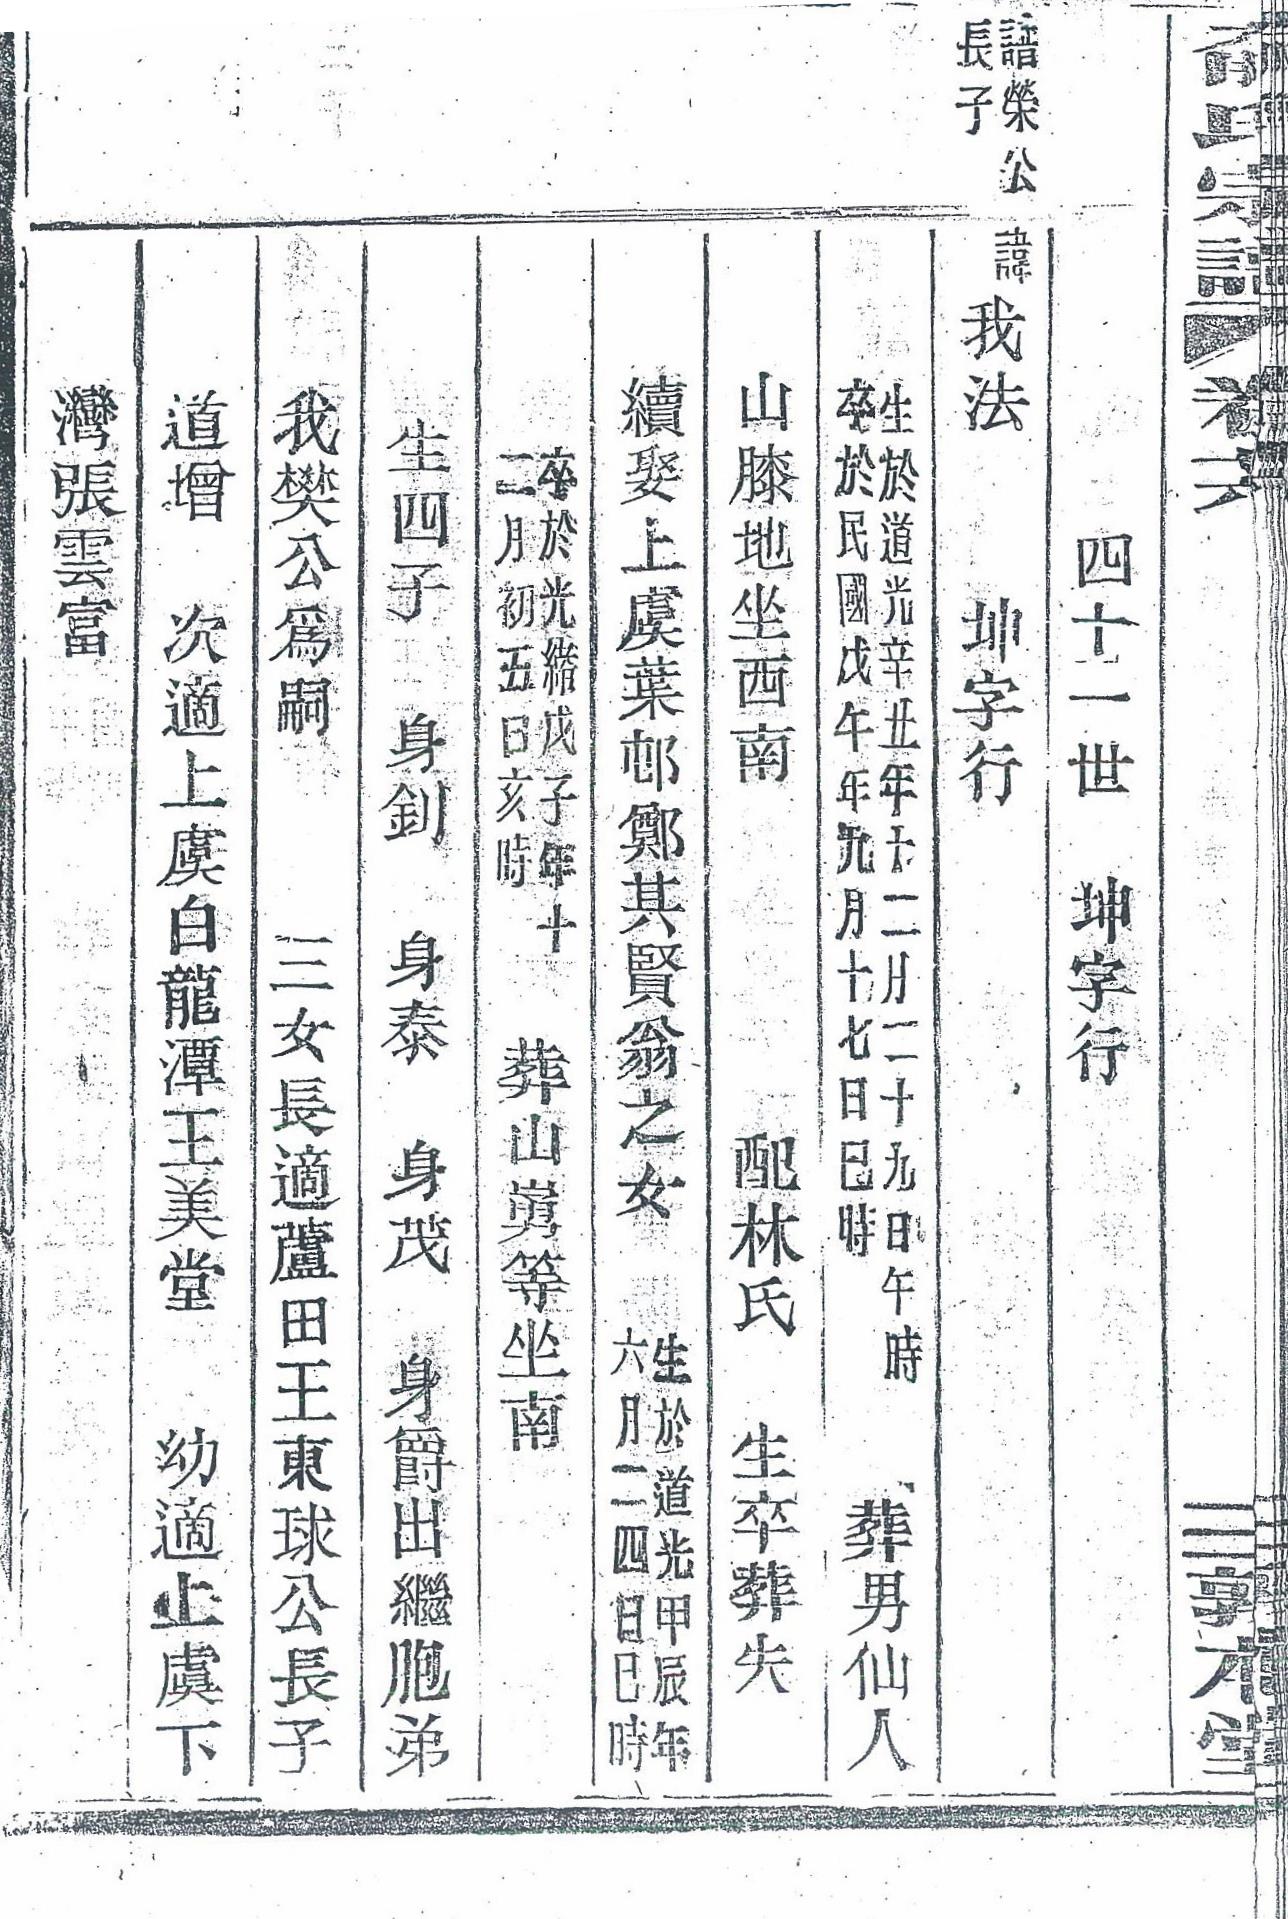 卷六
敦本堂
四十一世 坤字行
諳榮公
長子
諱我法 坤字行
生於道光辛丑年十二月二十九日午時
卒於民國戊午年九月十七日巳時
葬男仙人
山膝地坐西南 配林氏 生卒葬失
續娶上虞葉邨鄭其賢翁之女
生於道光甲辰年
六月二四日巳時
卒於光緒戊子年十
二月初五日亥時
葬山巽等坐南
生四子 身釗 身泰 身茂 身爵出繼胞弟
我樊公爲嗣 三女長適蘆田王東球公長子
道增 次適上虞白龍潭王美堂 幼適上虞下
灣張雲富